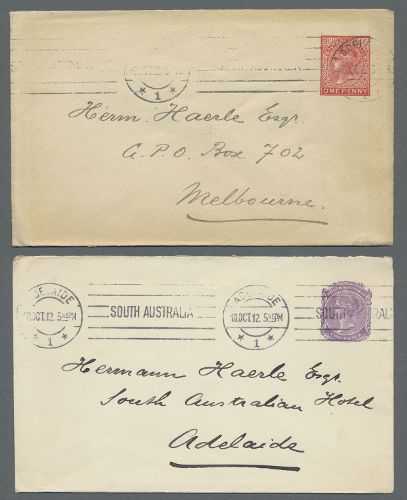 1
ONE PENNY
Herm. Haerle Esqr.
G. P. O. Box 702
Melbourne.
ADELAIDE
18 OCT. 12. 5 45 PM
1
SOUTH AUSTRALIA
ADELAIDE
18 OCT. 12. 5 45 PM
1
SOUTH AUSTRALIA
Hermann Haerle Esqr.
South Australian Hotel
Adelaide